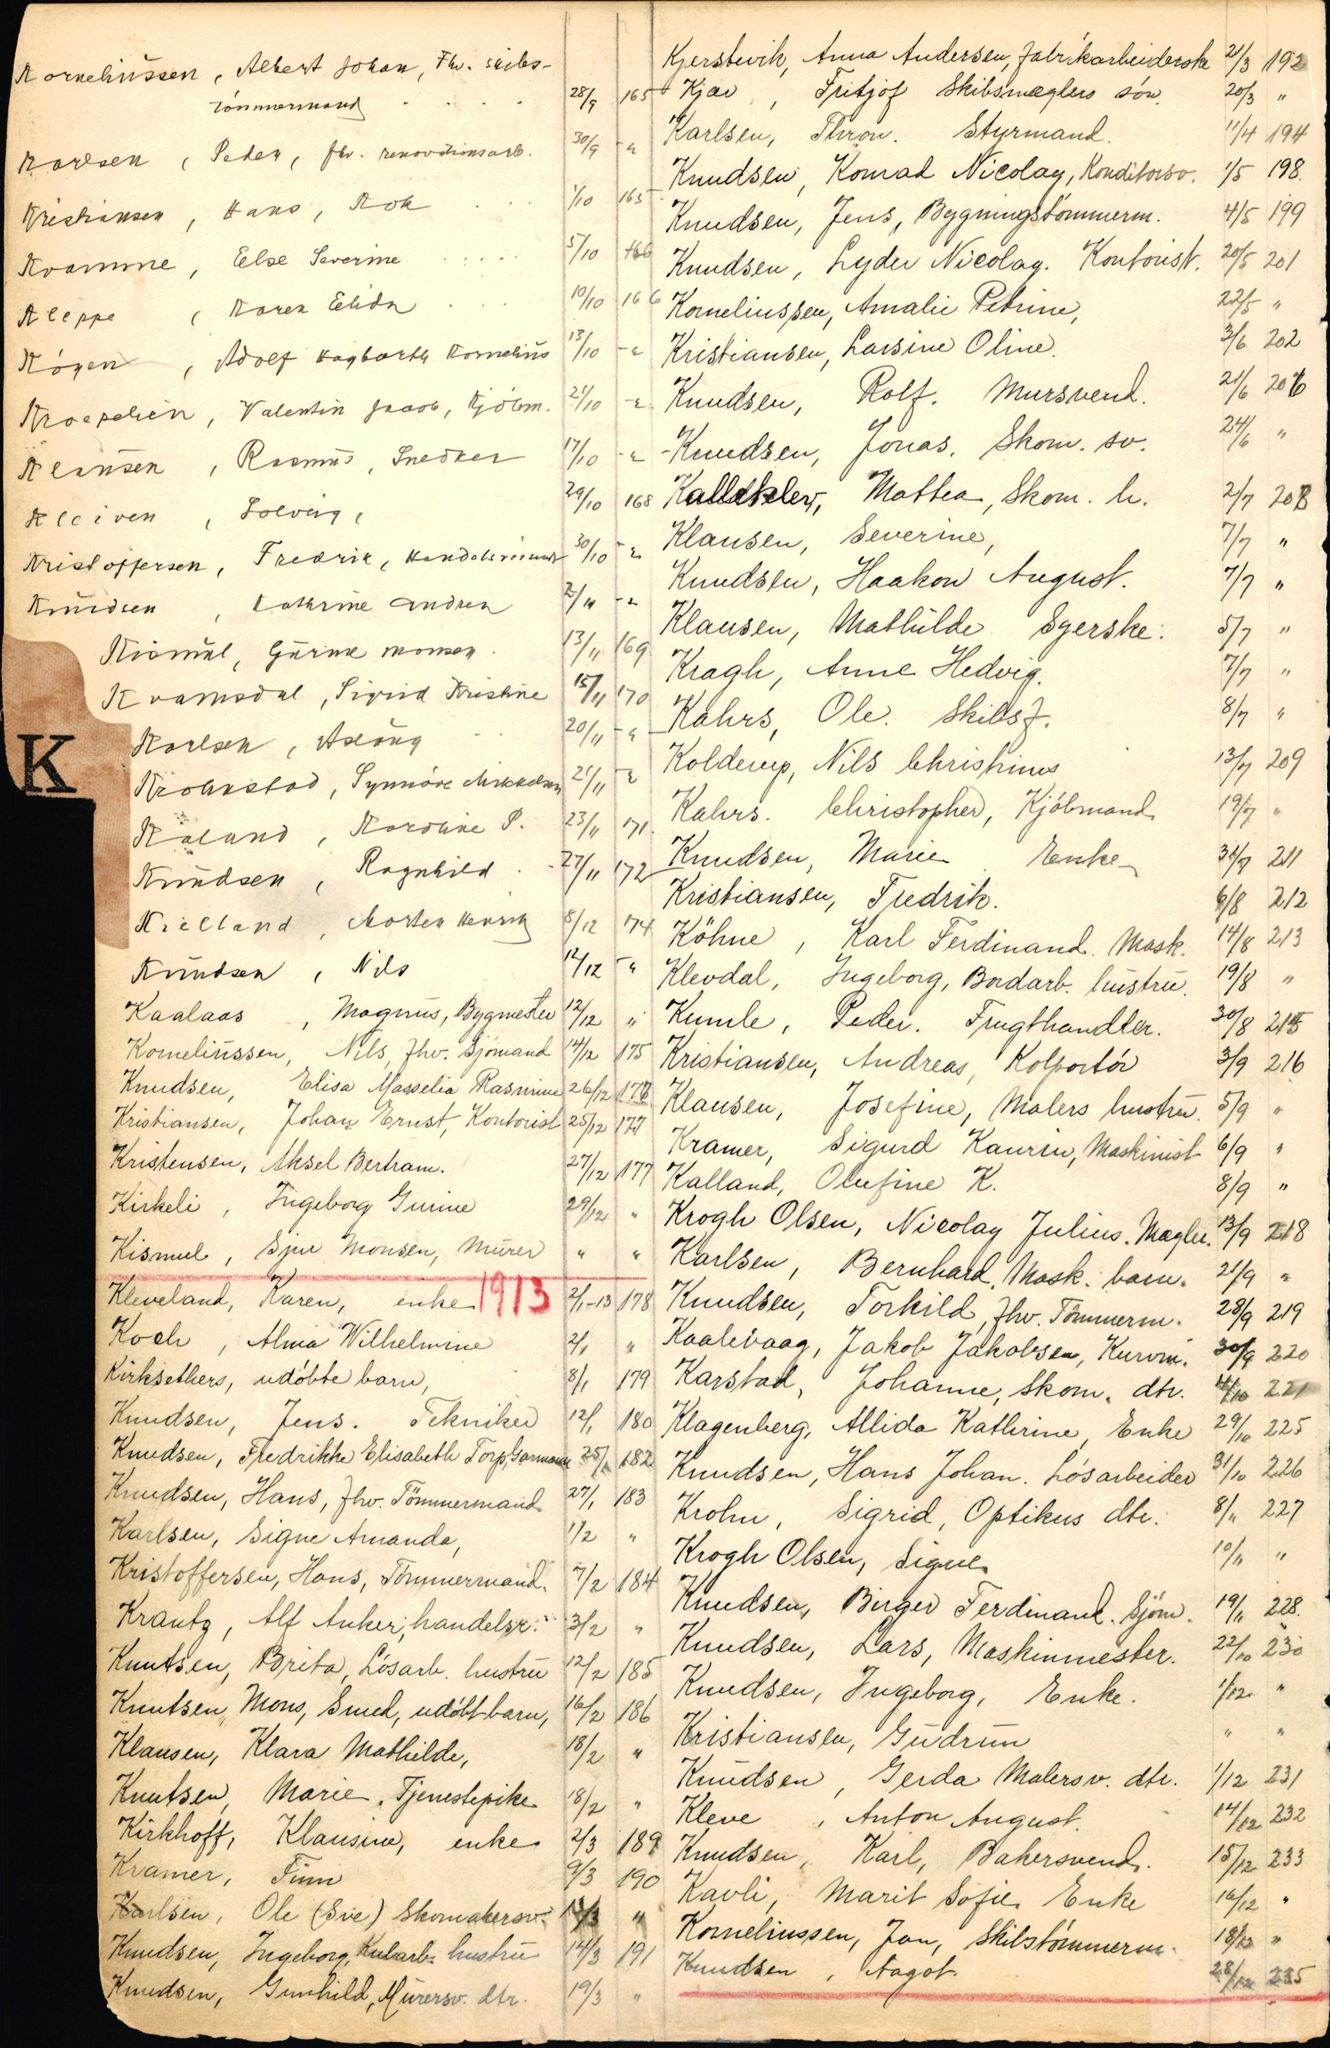 Korneliussen, Albert Johan, Fhv. skibs-
tömmermand 28/9 165
Karlsen, Peder, fhv. renovationsarb. 30/9 "
Kristiansen, Hans, Kok 1/10 165
Kvamme, Else Severine 5/10 166
Kleppe, Karen Elida 10/10 166
Adolf Hagbarth Kornelius 13/10 "
Valentin Jacob, Kjöbm. 21/10 "
Klausen, Rasmus, Snedker 17/10 "
Kleiven, Solveig, 29/10 168
Kristoffersen, Fredrik, 30/10 "
Knudsen, Kathrine Andrea 2/11 "
Kismul, Gurine Monsen. 13/11 169
Kvamsdal, Sigrid Kristine 15/11 170
Karlsen, Aslaug 20/11 "
K
Krohnstad, Synnöve Mikkelsen 21/11 "
Kaland, Karoline P. 23/11 171.
Knudsen, Ragnhild 27/11 172
Kielland, Morten Henrik 8/12 174
Knudsen, Nils 12/12 "
Kaalaas, Magnus, Bygmester 12/12 "
Korneliussen, Nils, fhv. Sjömand 14/12 175
Knudsen, Elisa Masselia Rasmine 26/12
Kristiansen, Johan Ernst, Kontorist 25/12 177
Kristensen, Aksel Bertram. 27/12 177
Kirkeli, Ingeborg Gurine 29/12 "
Kismul, Sjur Monsen, Murer " "
Kleveland, Karen, enke 1913 2/1-13 178
Koch, Alma Wilhelmine 2/1 "
Kirksethers, udöbte barn, 8/1 179
Knudsen, Jens. Tekniker 12/1 180
Knudsen, Fredrikke Elisabeth Torp, Garmann 25/1 182
Knudsen, Hans, fhv. Tömmermand 27/1 183
Karlsen, Signe Amanda, 1/2 "
Kristoffersen, Hans, Tömmermand. 7/2 184
Krantz, Alf Anker, handelsr. 3/2 "
Knutsen, Brita, Lösarb. hustru 12/2 185
Knutsen, Mons, Smed, udöbt barn, 16/2 186
Klausen, Klara Mathilde, 18/2 "
Knutsen, Marie, Tjenestepike 18/2 "
Kirkhoff, Klausine, enke 2/3 189
Kramer, Finn 9/3 190
Karlsen, Ole (Sve) Skomakersv. 13/3 "
Knudsen, Ingeborg, Kularb. hustru 14/3 191
Knudsen, Gunhild, Murersv. dtr. 19/3 "
Kjerstevik, Anna Andersen, fabrikarbeiderske 21/3 192
Kjær, Fritjof Skibsmæglers sön. 20/3 "
Karlsen, Thron. Styrmand. 11/4 194
Knudsen, Konrad Nicolay, Konditorsv. 1/5 198.
Knudsen, Jens, Bygningstömmerm. 4/5 199
Knudsen, Lyder Nicolay. Kontorist. 20/5 201
Korneliussen, Amalie Petrine, 22/5 "
Kristiansen, Larsine Oline. 3/6 202
Knudsen, Rolf. Mursvend. 21/6 206
Knudsen, Jonas. Skom. sv. 24/6 "
Mattea, Skom. h. 2/7 208
Klausen, Severine, 7/7 "
Knudsen, Haakon August. 7/7 "
Klausen, Mathilde Syerske. 5/7 "
Kragh, Anne Hedvig. 7/7 "
Kahrs, Ole. Skibsf. 8/7 "
Kolderup, Nils Christinus 13/7 209
Kahrs. Christopher, Kjöbmand 19/7 "
Knudsen, Marie Enke 31/7 211
Kristiansen, Fredrik. 6/8 212
Köhne, Karl Ferdinand. Mask. 14/8 213
Klevdal, Ingeborg, Bordarb. hustru. 19/8 "
Kumle, Peder. Frugthandler. 30/8 215
Kristiansen, Andreas, Kolportör 3/9 216
Klausen, Josefine, Malers hustru. 5/9 "
Kramer, Sigurd Kaurin, Maskinist 6/9 "
Kalland, Olufine K. 8/9 "
Krogh Olsen, Nicolay Julius. Mægler. 13/9 218
Karlsen, Bernhard, Mask. barn. 21/9 "
Knudsen, Torkild, fhv. Tömmerm. 28/9 219
Kaalevaag, Jakob Jakobsen, Kurvm. 30/9 220
Karstad, Johanne, Skom. dtr. 4/10 221
Klagenberg, Allida Kathrine, Enke 29/10 225
Knudsen, Hans Johan. Lösarbeider 31/10 226
Krohn, Sigrid, Optikus dtr. 8/11 227
Krogh Olsen, Signe 10/11 "
Knudsen, Birger Ferdinand. Sjöm. 19/11 228.
Knudsen, Lars, Maskinmester. 22/10 230
Knudsen, Ingeborg, Enke. 1/12. "
Kristiansen, Gudrun " "
Knudsen, Gerda Malersv. dtr. 1/12 231
Kleve, Anton August. 14/12 232
Knudsen, Karl, Bakersvend. 15/12 233
Kavli, Marit Sofie Enke 16/12 "
Korneliussen, Jan, Skibstömmerm. 18/12 "
Knudsen, Aagot. 28/12 235